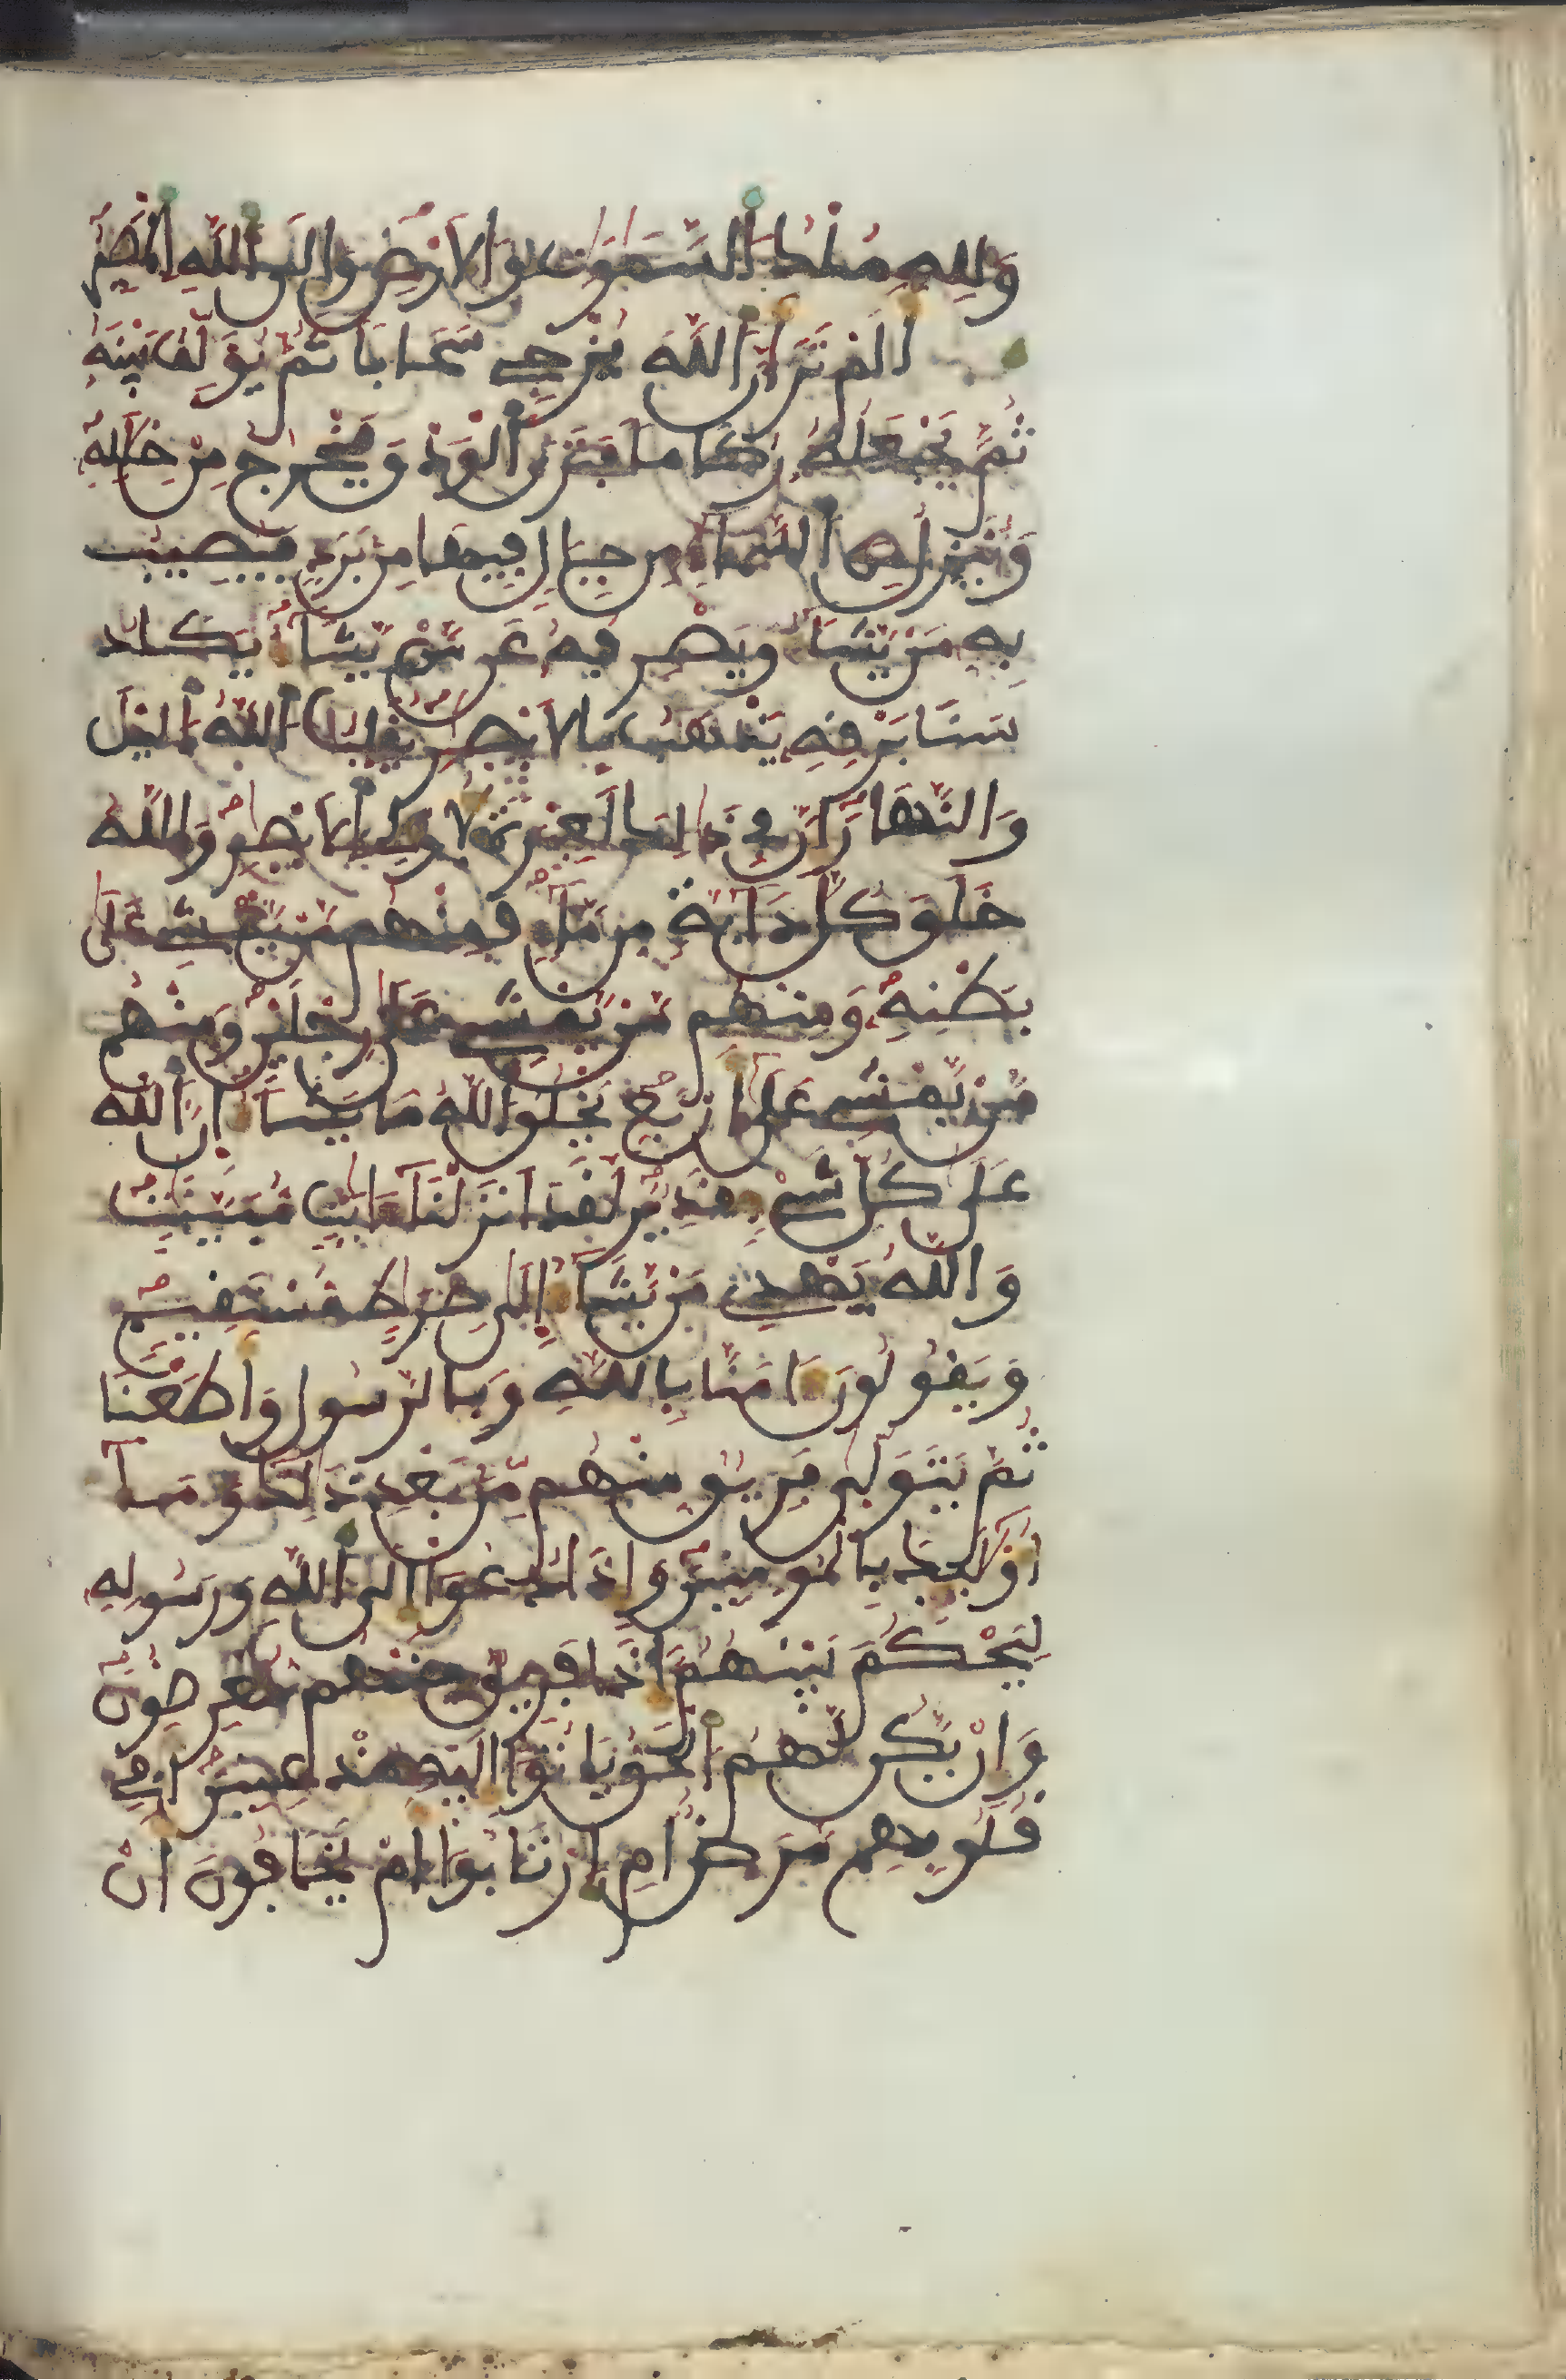 وَلِلهِ مُلْكُ اَ۬لسَّمَٰوَٰتِ وَالَارْضِ وَإِلَى اَ۬للَّهِ اِ۬لْمَصِيرُ
أَلَمْ تَرَ أَنَّ اَ۬للَّهَ يُزْجِے سَحَاباٗ ثُمَّ يُوَلِّفُ بَيْنَهُۥ
ثُمَّ يَجْعَلُهُۥ رُكَاماٗ فَتَرَي اَ۬لْوَدْقَ يَخْرُجُ مِنْ خِلَٰلِهِۦ
وَيُنَزِّلُ مِنَ اَ۬لسَّمَآءِ مِن جِبَالٖ فِيهَا مِنۢ بَرَدٖ فَيُصِيبُ
بِهِۦ مَنْ يَّشَآءُ وَيَصْرِفُهُۥ عَن مَّنْ يَّشَآءُ يَكَادُ
سَنَا بَرْقِهِۦ يَذْهَبُ بِالَابْصٰ۪رِ يُقَلِّبُ اُ۬للَّهُ اُ۬ليْلَ
وَالنَّهَارَ إِنَّ فِے ذَٰلِكَ لَعِبْرَةٗ لِّأُوْلِے اِ۬لَابْصٰ۪رِ وَاللَّهُ
خَلَقَ كُلَّ دَآبَّةٖ مِّن مَّآءٖ فَمِنْهُم مَّنْ يَّمْشِے عَلَيٰ
بَطْنِهِۦ وَمِنْهُم مَّنْ يَّمْشِے عَلَيٰ رِجْلَيْنِ وَمِنْهُم
مَّنْ يَّمْشِے عَلَيٰٓ أَرْبَعٖ يَخْلُقُ اُ۬للَّهُ مَا يَشَآءُ انَّ اَ۬للَّهَ
عَلَيٰ كُلِّ شَےْءٖ قَدِيرٞ لَّقَدَ اَنزَلْنَآ ءَايَٰتٖ مُّبَيَّنَٰتٖ
وَاللَّهُ يَهْدِے مَنْ يَّشَآءُ إِلَيٰ صِرَٰطٖ مُّسْتَقِيمٖ
وَيَقُولُونَ ءَامَنَّا بِاللَّهِ وَبِالرَّسُولِ وَأَطَعْنَا
ثُمَّ يَتَوَلَّيٰ فَرِيقٞ مِّنْهُم مِّنۢ بَعْدِ ذَٰلِكَ وَمَآ
أُوْلَٰٓئِكَ بِالْمُومِنِينَ وَإِذَا دُعُوٓاْ إِلَى اَ۬للَّهِ وَرَسُولِهِۦ
لِيَحْكُمَ بَيْنَهُمُۥٓ إِذَا فَرِيقٞ مِّنْهُم مُّعْرِضُونَ
وَإِنْ يَّكُن لَّهُمُ اُ۬لْحَقُّ يَاتُوٓاْ إِلَيْهِ مُذْعِنِينَ أَفِے
قُلُوبِهِم مَّرَضٌ اَمِ اِ۪رْتَابُوٓاْ أَمْ يَخَافُونَ أَنْ